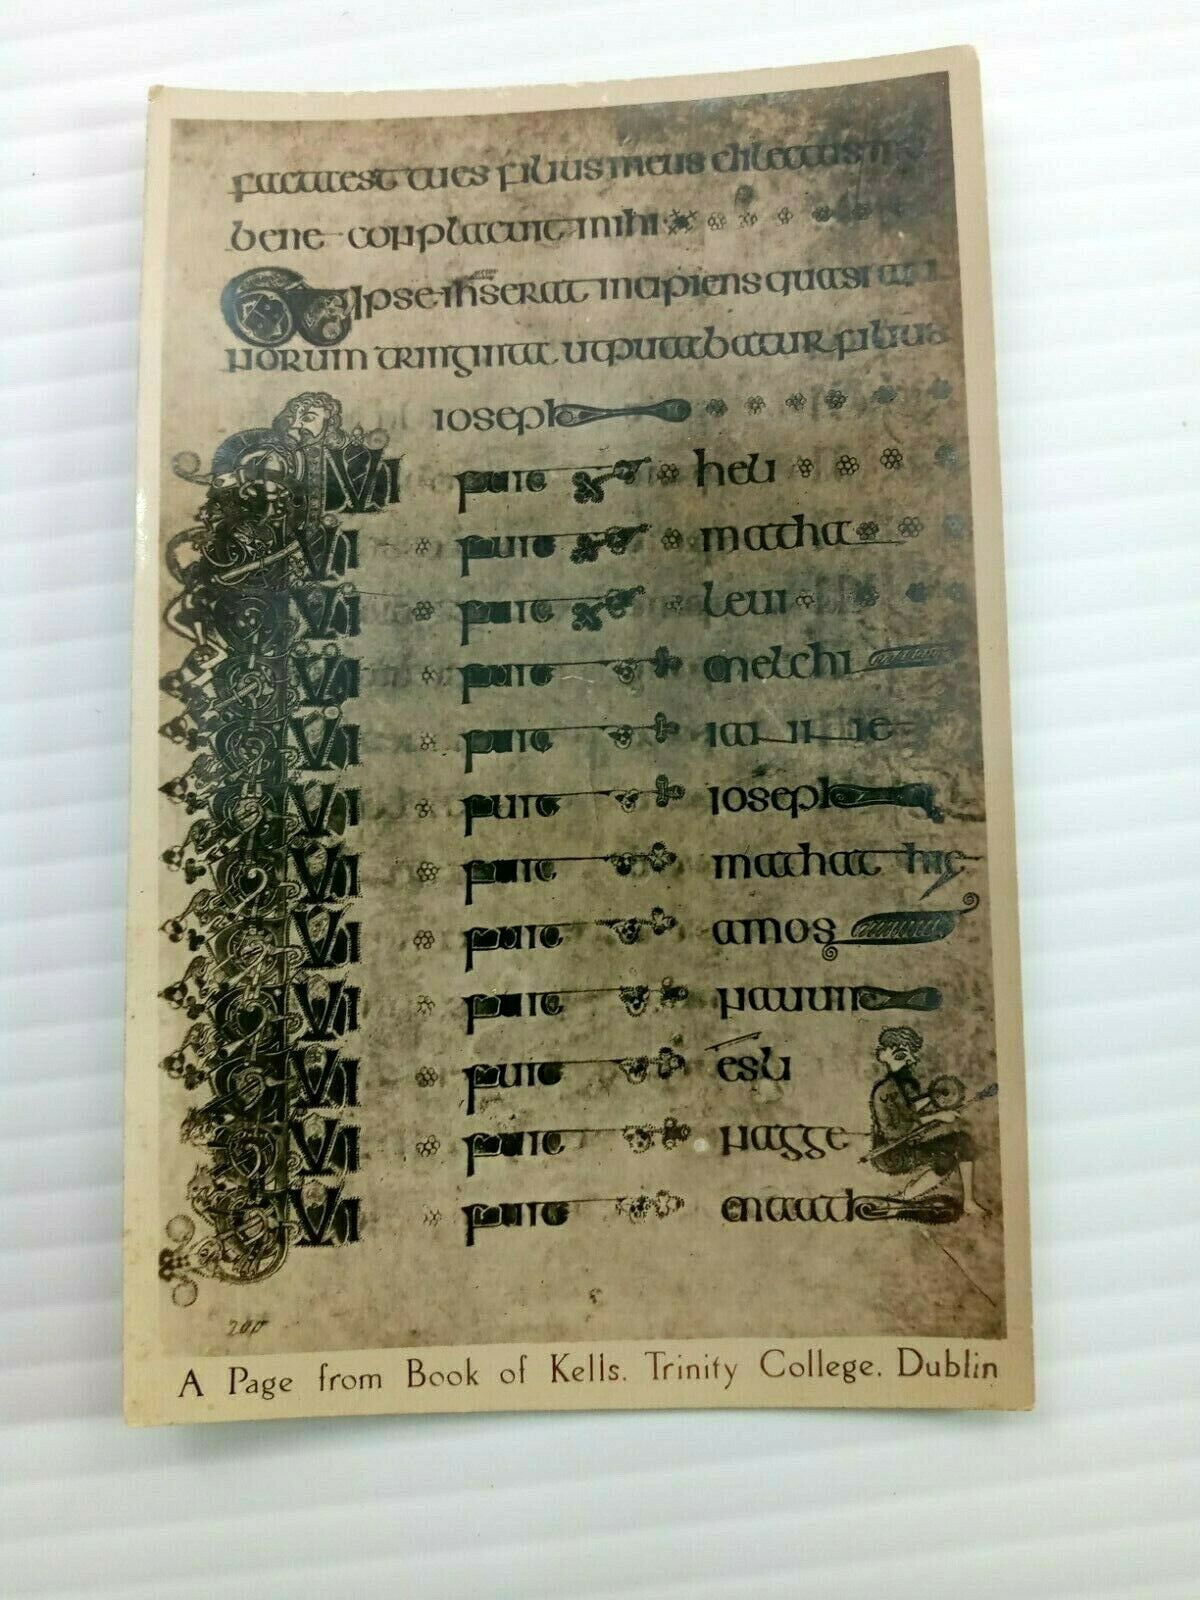 facta est tu es filius meus dilectus in te
bene conplacuit mihi
Et ipse ihs erat incipiens quasi an
norum triginta ut putabatur filius
ioseph
QUI fuit heli
QUI fuit matha
QUI fuit levi
QUI fuit melchi
QUI fuit iannae
QUI fuit ioseph
QUI fuit mathathie
QUI fuit amos
QUI fuit nauum
QUI fuit esli
QUI fuit nagge
QUI fuit maath
200
A Page from Book of Kells. Trinity College. Dublin